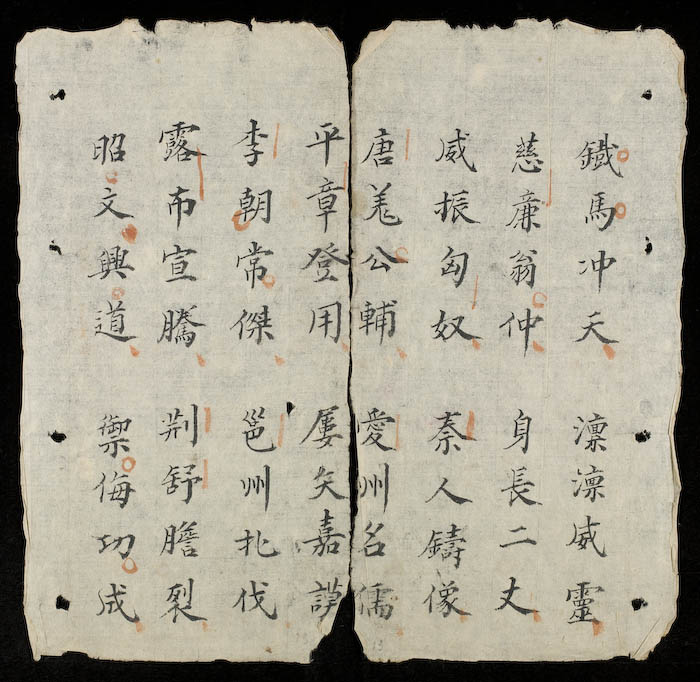 鐵馬冲天 澟澟威靈
慈廉翁仲 身長二丈
威振匈奴 秦人鑄像
唐羗公輔 愛州名儒
平章登用 屢矢嘉謨
李朝常傑 邕州北伐
露布宣騰 荆舒膽裂
昭文興道 禦侮功成